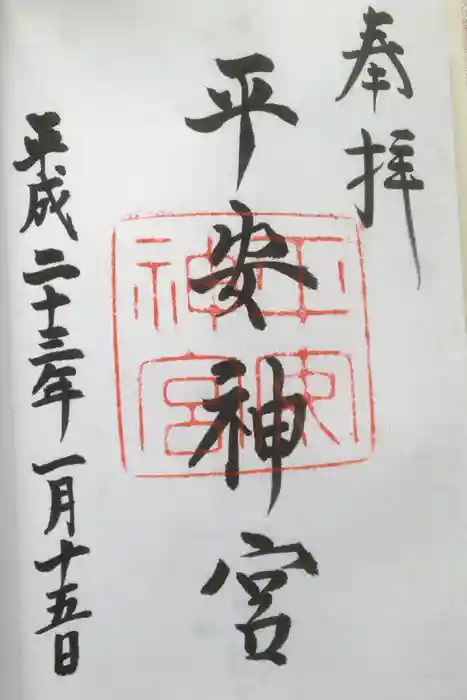 奉拝
平安神宮
平安神宮
平成二十三年一月十五日